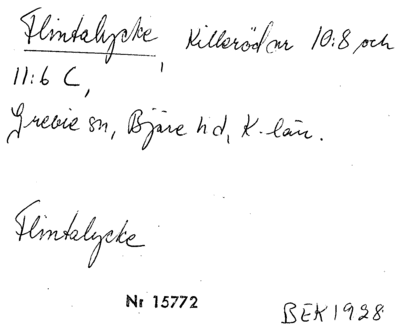 Flintalycke, Killeröd nr 10:8 och
11:6 C,
Grevie sn, Bjäre hd, K-län.
Flintalycke
Nr 15772
BEK 1928